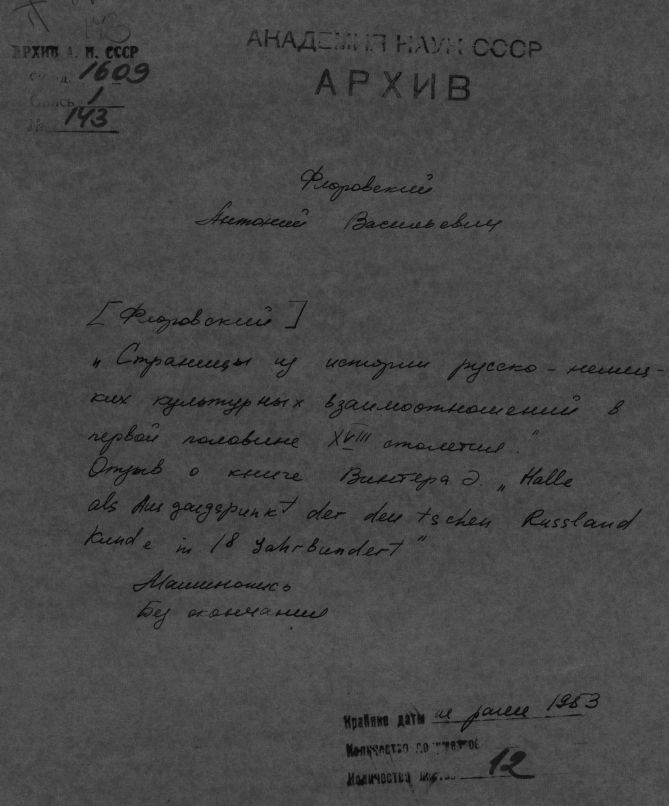 143
АРХИВ А. Н. СССР
1609
Опись 1
№ 143
АКАДЕМИЯ НАУК СССР
АРХИВ
Флоровский
Антоний Васильевич
[Флоровский]
„Страницы из истории русско-немец-
ких культурных взаимоотношений в
первой половине XVIII столетия."
Отзыв о книге Винтера Э. „Halle
als Ausgangspunkt der deutschen Russland
Kunde in 18 Jahrhundert"
Машинопись
Без окончания
Крайние даты не ранее 1953
Количество документов
Количество листов 12